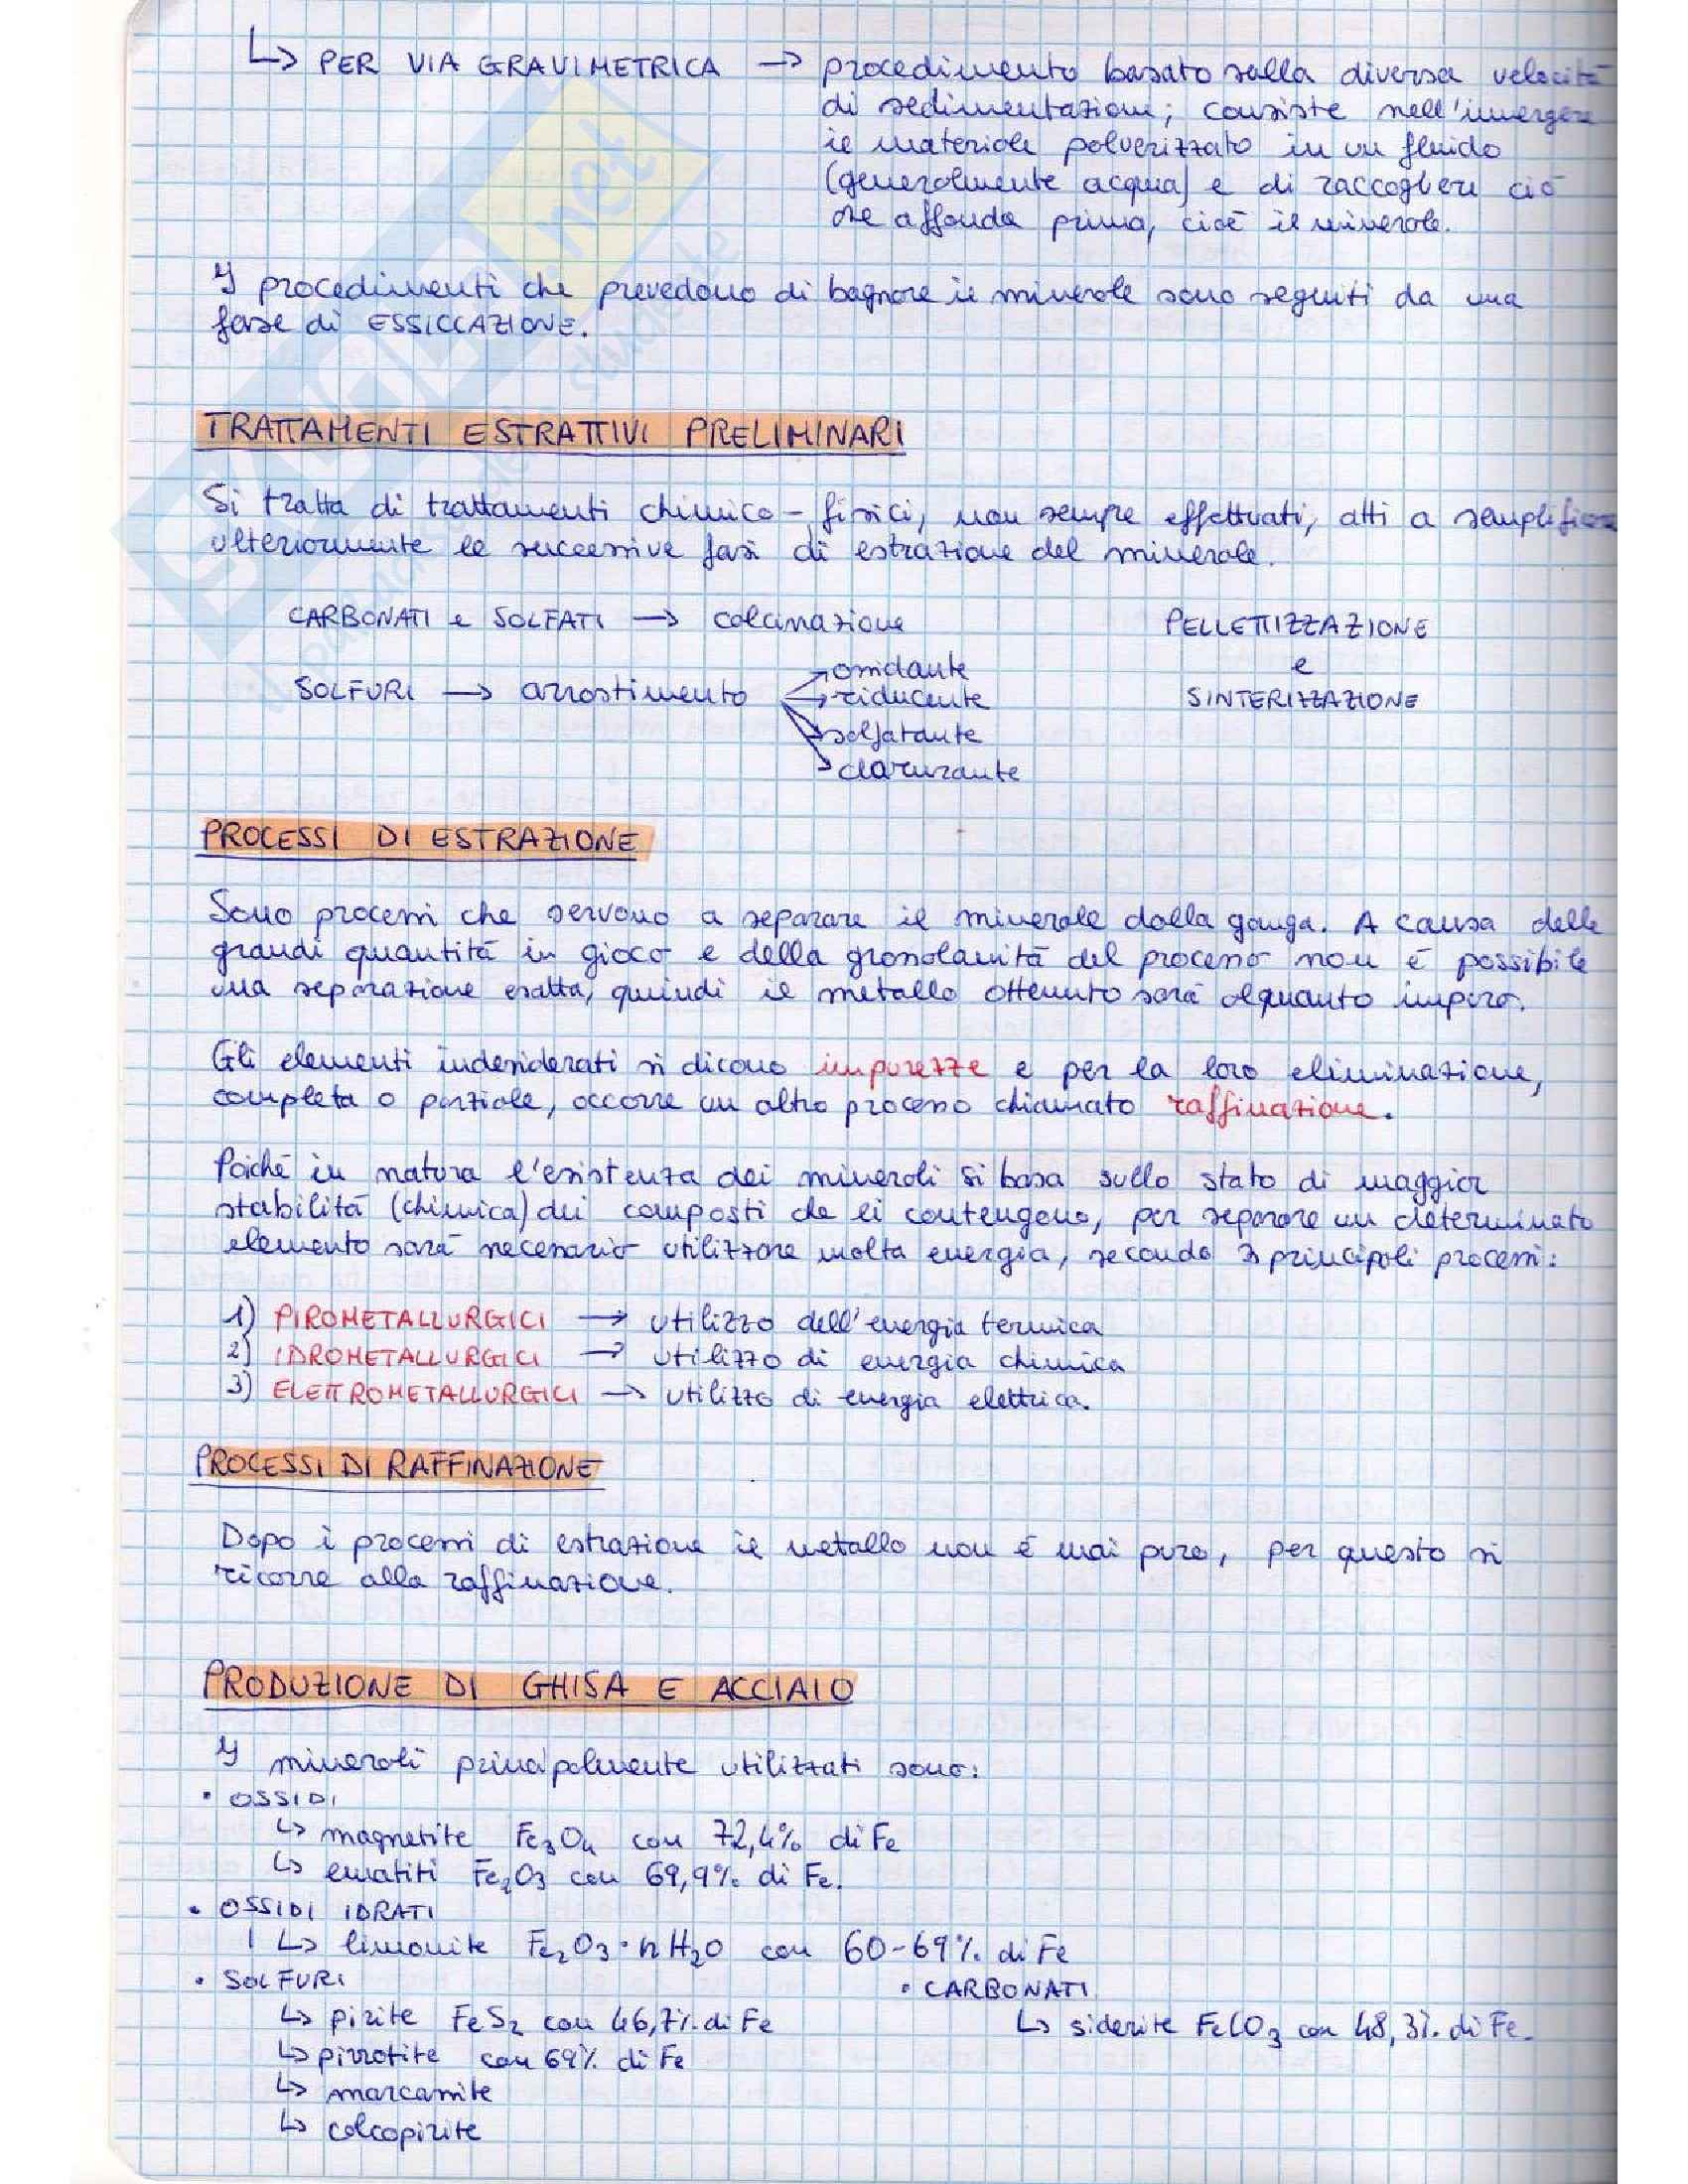 ↳ PER VIA GRAVIMETRICA → procedimento basato sulla diversa velocità
di sedimentazione; consiste nell'immergere
il materiale polverizzato in un fluido
(generalmente acqua) e di raccogliere ciò
che affonda prima, cioè il minerale.
I procedimenti che prevedono di bagnare il minerale sono seguiti da una
fase di ESSICCAZIONE.
TRATTAMENTI ESTRATTIVI PRELIMINARI
Si tratta di trattamenti chimico-fisici, non sempre effettuati, atti a semplificare
ulteriormente le successive fasi di estrazione del minerale.
CARBONATI e SOLFATI → calcinazione
PELLETTIZZAZIONE
e
SINTERIZZAZIONE
SOLFURI → arrostimento
→ ossidante
→ riducente
→ solfatante
→ clorurante
PROCESSI DI ESTRAZIONE
Sono processi che servono a separare il minerale dalla ganga. A causa delle
grandi quantità in gioco e della grossolanità del processo non è possibile
una separazione esatta, quindi il metallo ottenuto sarà alquanto impuro.
Gli elementi indesiderati si dicono impurezze e per la loro eliminazione,
completa o parziale, occorre un altro processo chiamato raffinazione.
Poiché in natura l'esistenza dei minerali si basa sullo stato di maggior
stabilità (chimica) dei composti che li contengono, per separare un determinato
elemento sarà necessario utilizzare molta energia, secondo 3 principali processi:
1) PIROMETALLURGICI → utilizzo dell'energia termica
2) IDROMETALLURGICI → utilizzo di energia chimica
3) ELETTROMETALLURGICI → utilizzo di energia elettrica.
PROCESSI DI RAFFINAZIONE
Dopo i processi di estrazione il metallo non è mai puro, per questo si
ricorre alla raffinazione.
PRODUZIONE DI GHISA E ACCIAIO
I minerali principalmente utilizzati sono:
• OSSIDI
↳ magnetite Fe₃O₄ con 72,4% di Fe
↳ ematiti Fe₂O₃ con 69,9% di Fe.
• OSSIDI IDRATI
↳ limonite Fe₂O₃·nH₂O con 60-69% di Fe
• SOLFURI
↳ pirite FeS₂ con 46,7% di Fe
↳ pirrotite con 69% di Fe
↳ marcassite
↳ calcopirite
• CARBONATI
↳ siderite FeCO₃ con 48,3% di Fe.